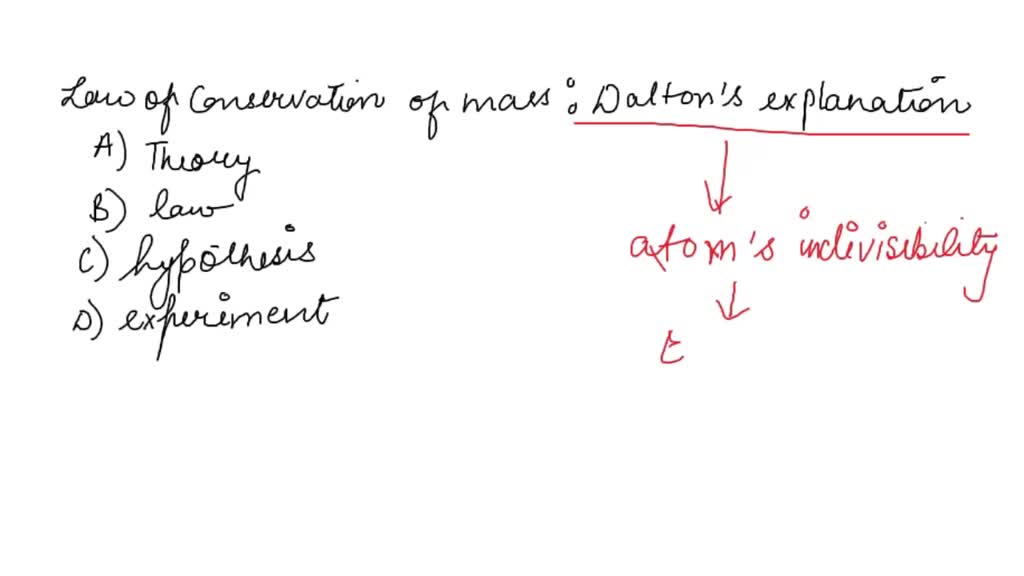 Law of Conservation of mass : Dalton's explanation
A) Theory
B) law
C) hypothesis
D) experiment
atom's indivisibility
t